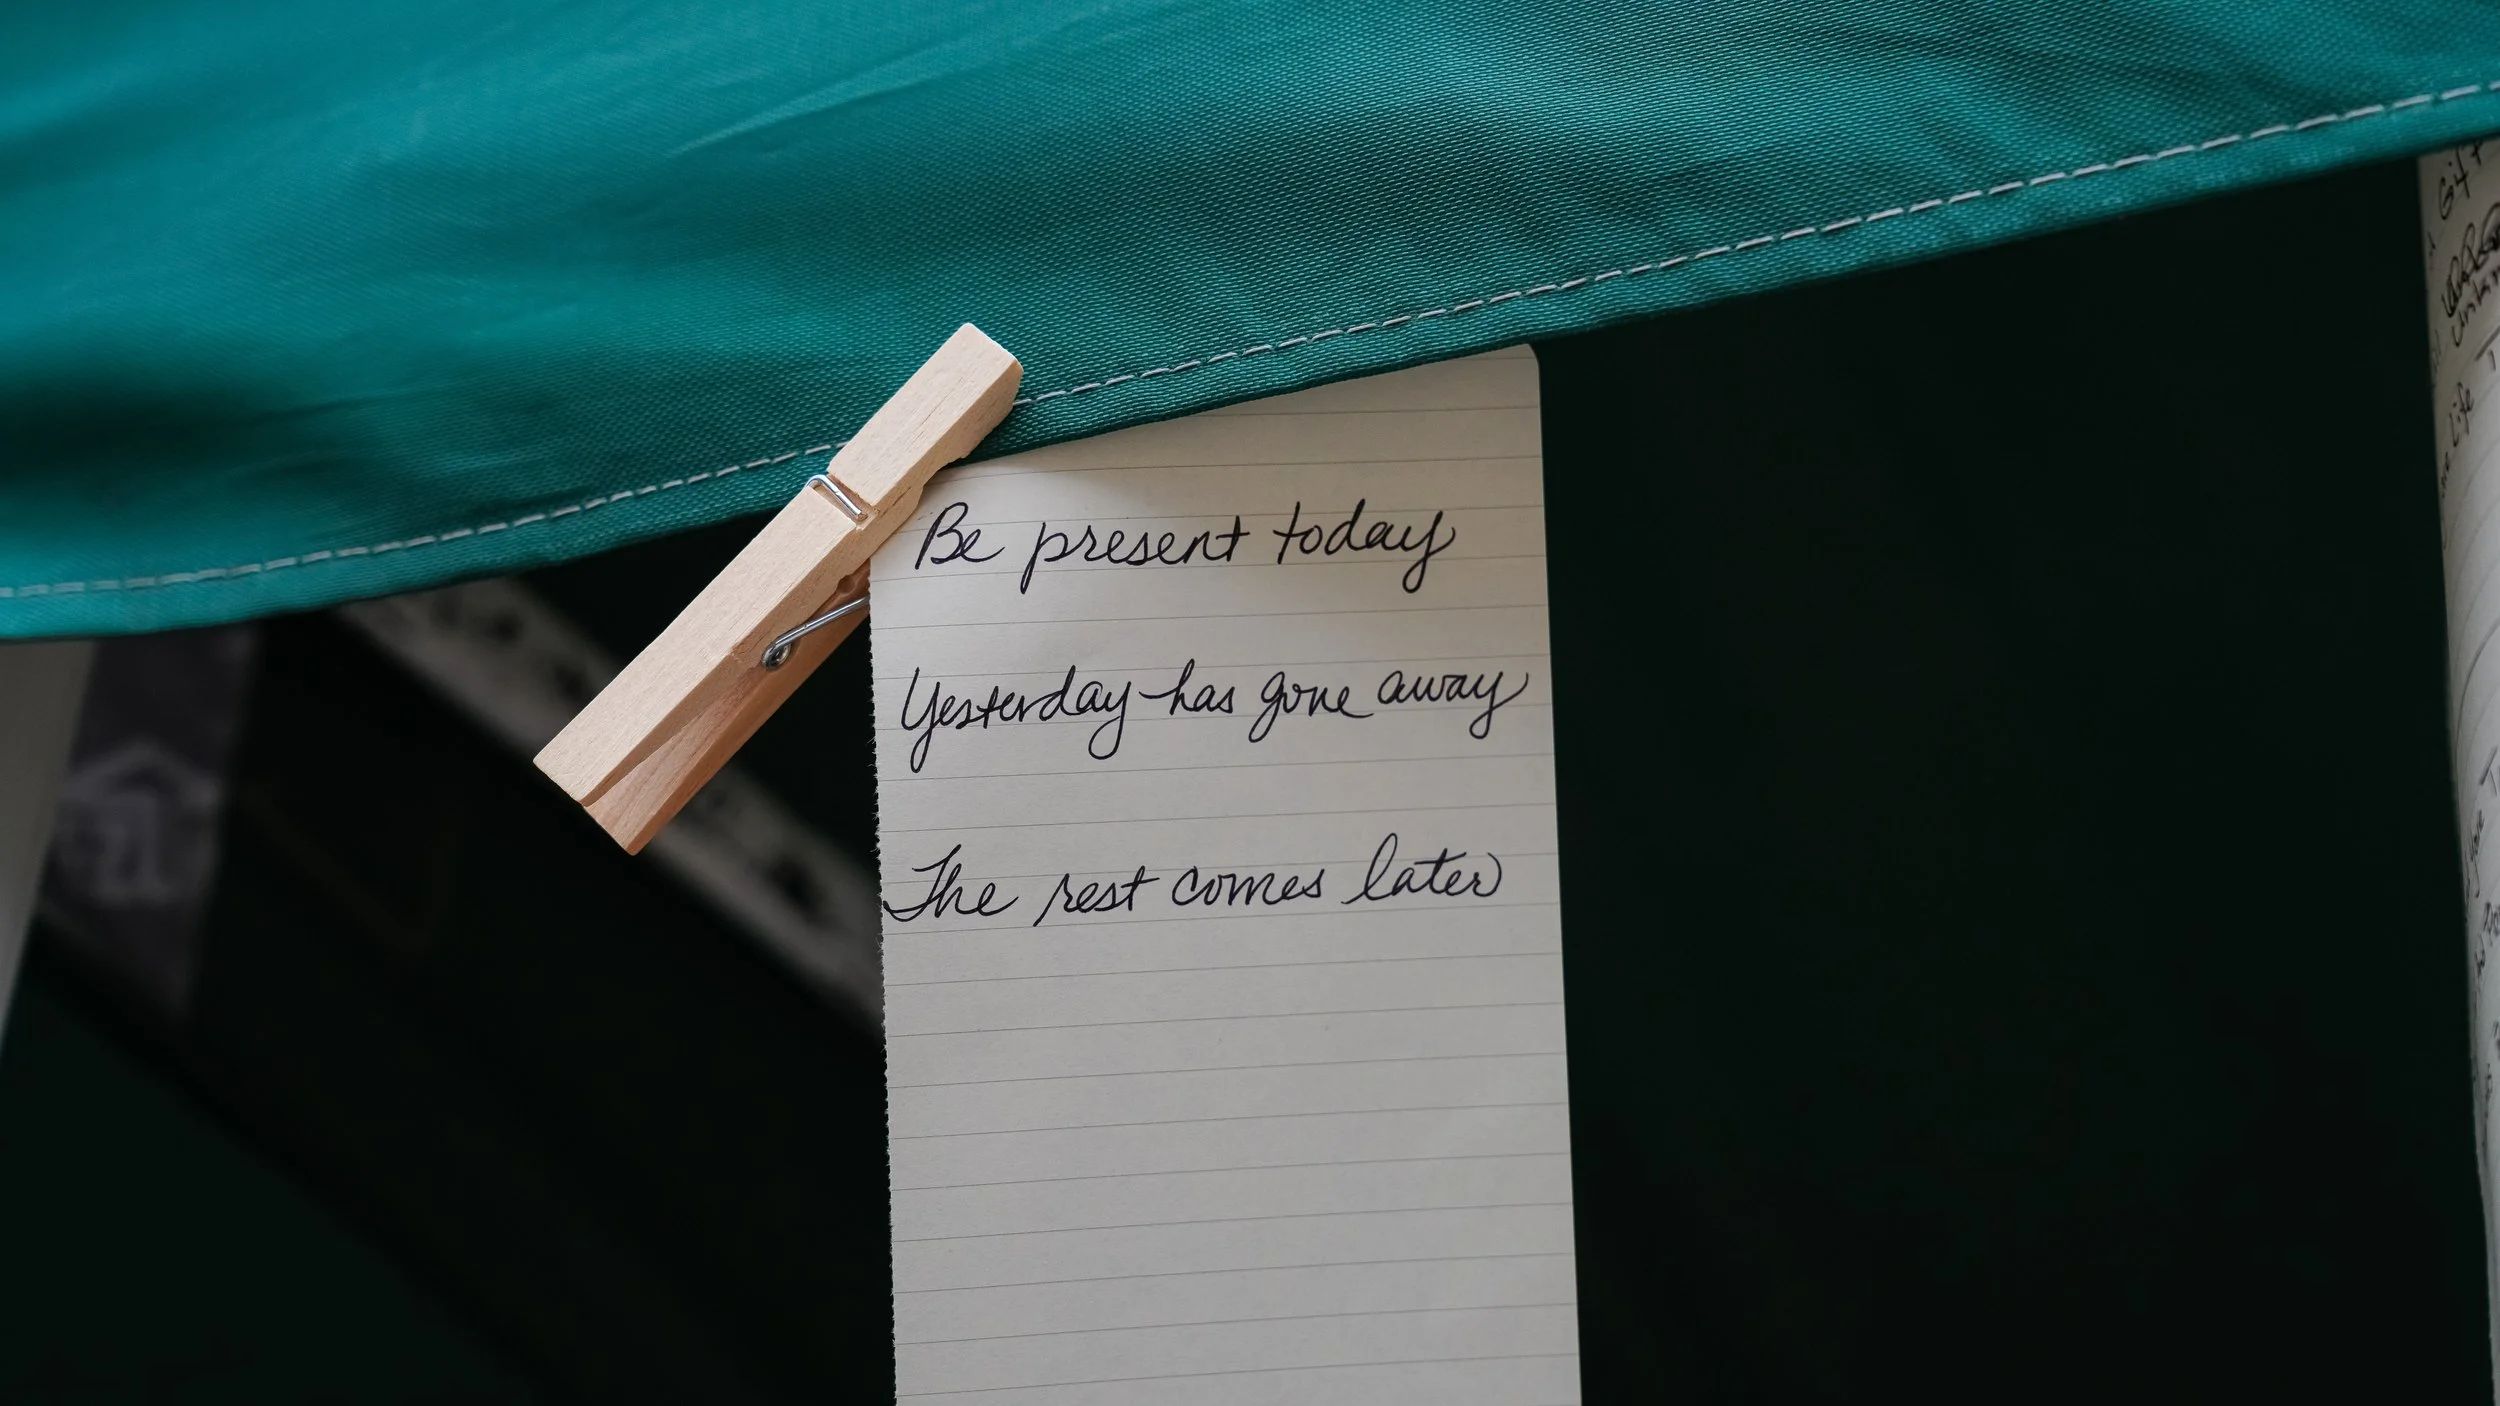 Be present today
Yesterday has gone away
The rest comes later
Gift
Life